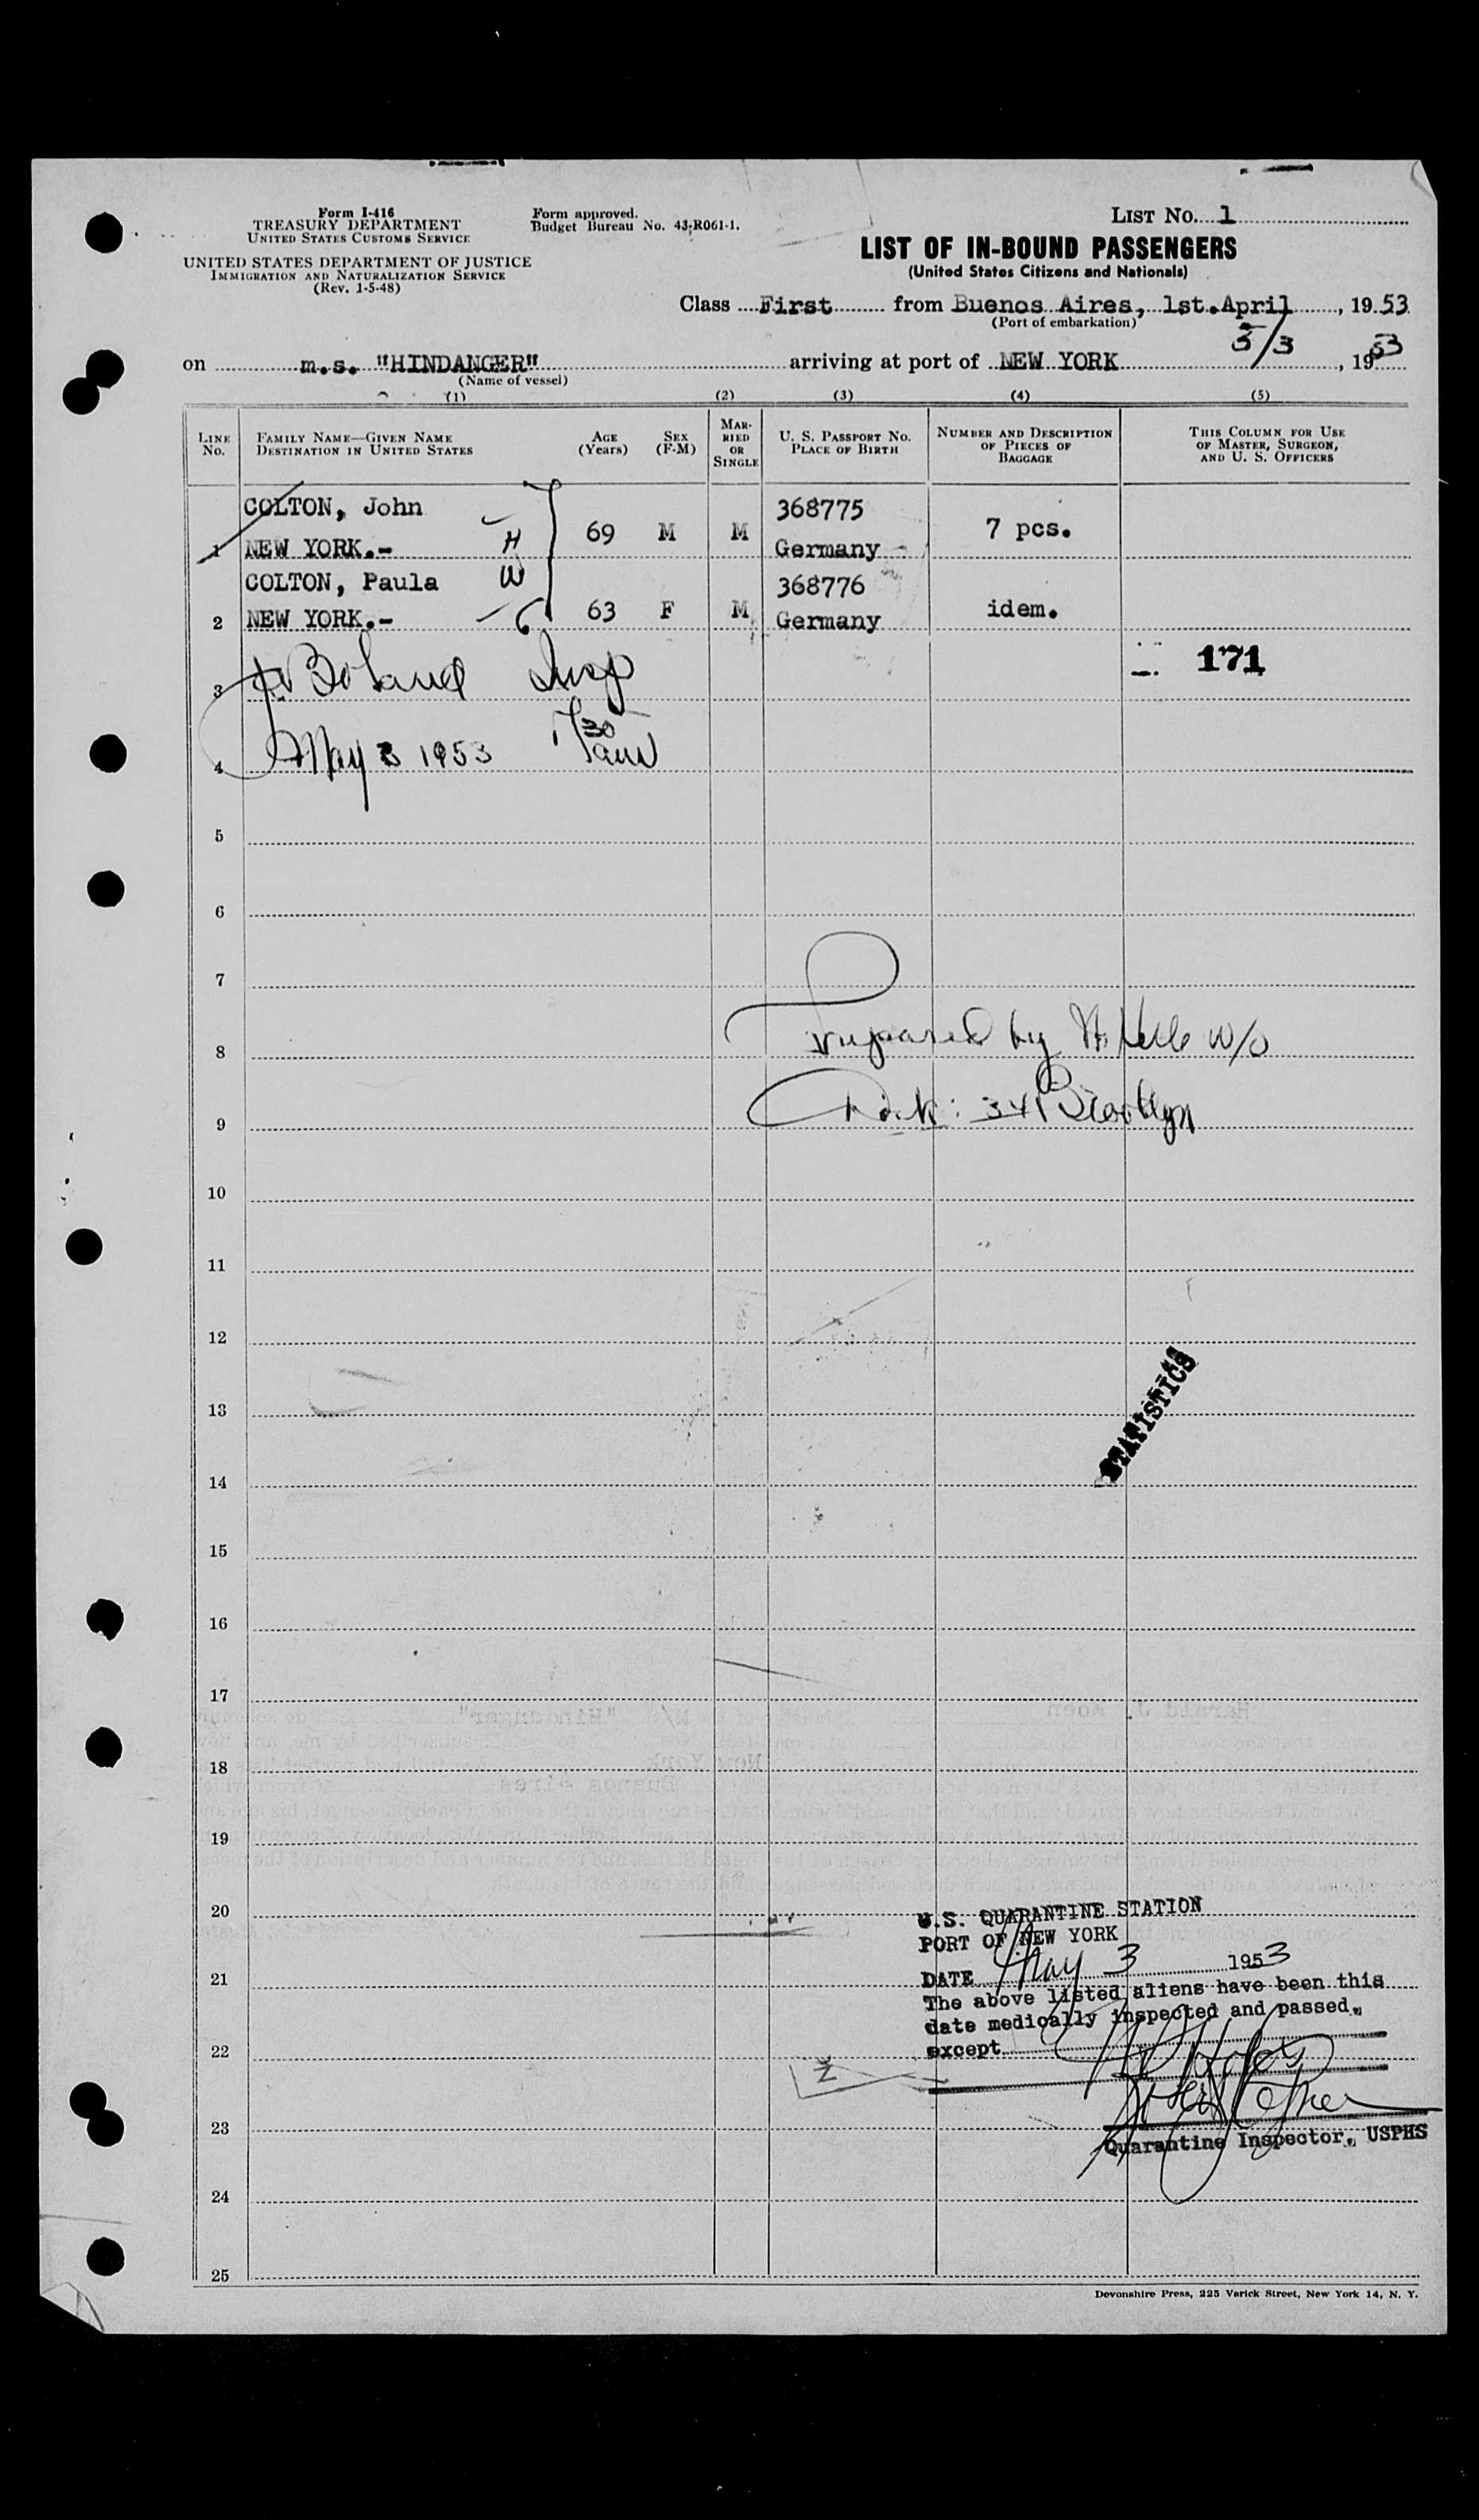 Form I-416
TREASURY DEPARTMENT
UNITED STATES CUSTOMS SERVICE
UNITED STATES DEPARTMENT OF JUSTICE
IMMIGRATION AND NATURALIZATION SERVICE
(Rev. 1-5-48)
Form approved.
Budget Bureau No. 43-R061-1.
LIST NO. 1
LIST OF IN-BOUND PASSENGERS
(United States Citizens and Nationals)
Class First from Buenos Aires, 1st. April, 1953
(Port of embarkation)
on m.s. "HINDANGER" arriving at port of NEW YORK 5/3, 1953
(Name of vessel)
(1) (2) (3) (4) (5)
LINE No.
FAMILY NAME—GIVEN NAME
DESTINATION IN UNITED STATES
AGE (Years)
SEX (F-M)
MARRIED OR SINGLE
U. S. PASSPORT NO.
PLACE OF BIRTH
NUMBER AND DESCRIPTION OF PIECES OF BAGGAGE
THIS COLUMN FOR USE OF MASTER, SURGEON, AND U. S. OFFICERS
COLTON, John 368775
1 NEW YORK.- H 69 M M Germany 7 pcs.
COLTON, Paula W 368776
2 NEW YORK.- 63 F M Germany idem.
171
3 Boland Insp
4 May 3 1953 7 30 am
5
6
7
8 Prepared by
9 Dock: Brooklyn
10
11
12
13
STATISTICS
14
15
16
17
18
19
20
U.S. QUARANTINE STATION
PORT OF NEW YORK
21 DATE May 3 1953
The above listed aliens have been this
date medically inspected and passed,
22 except
23
Quarantine Inspector, USPHS
24
25
Devonshire Press, 225 Varick Street, New York 14, N. Y.